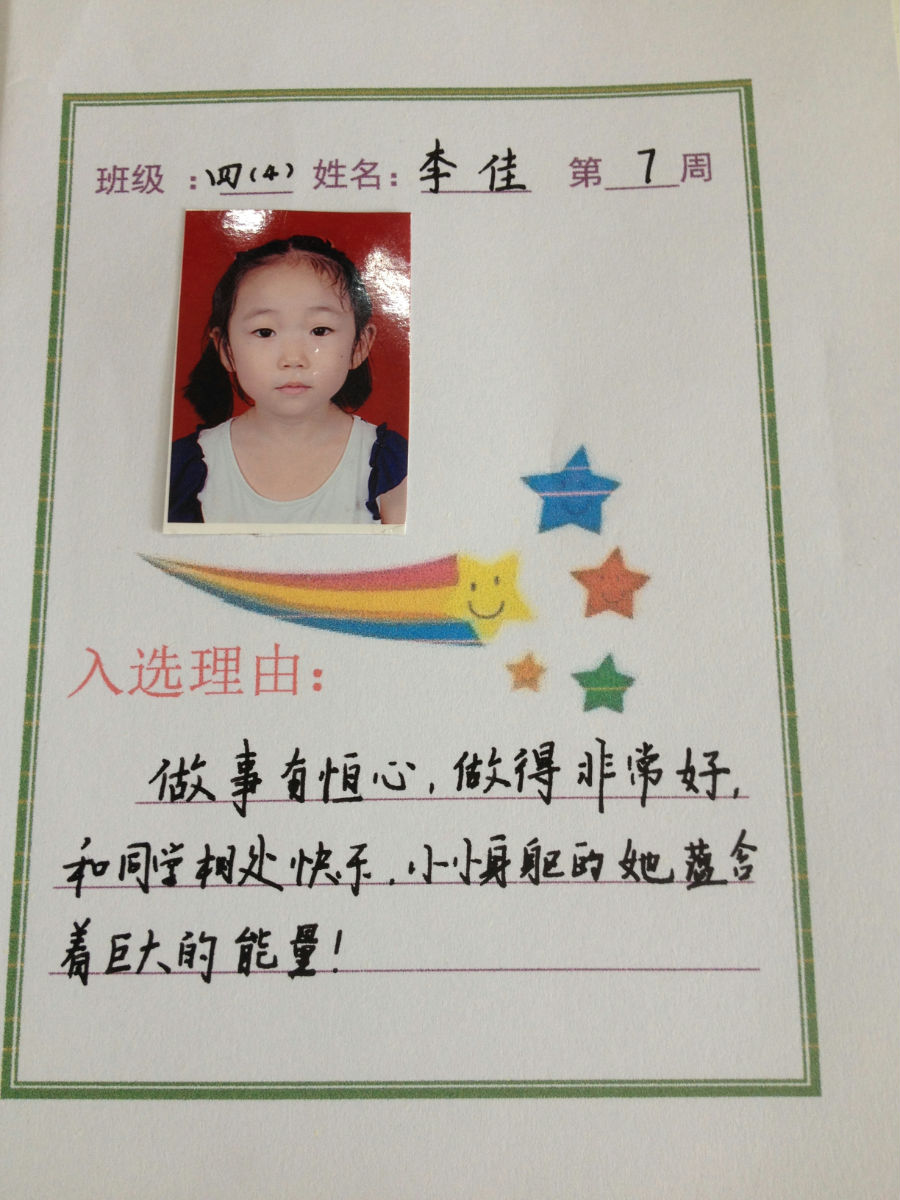 班级：四(4) 姓名：李佳 第7周
入选理由：
做事有恒心,做得非常好,
和同学相处快乐,小小身躯的她蕴含
着巨大的能量!